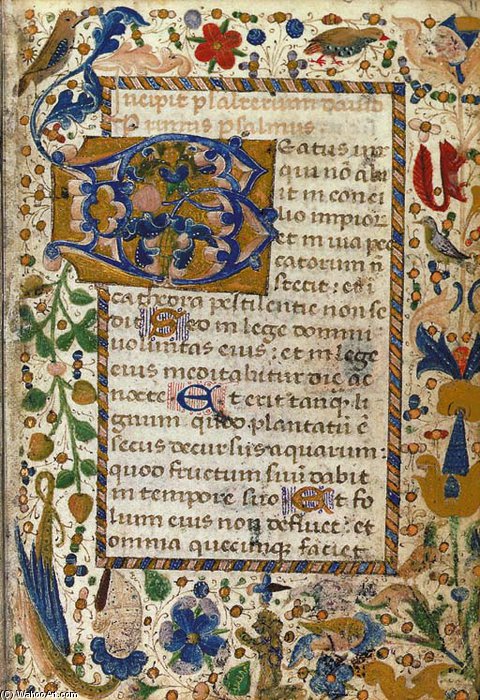 Incipit psalterium david
Primus psalmus
Beatus uir
qui nō abi
it in conci
lio impior
et in uia pec
catorum n̄
stetit : et i
cathedra pestilentie non se
dit Sed in lege domini
uoluntas eius : et in lege
eius meditabitur die ac
nocte Et erit tanq̄ li
gnum quod plantatū e
secus decursus aquarum :
quod fructum suū dabit
in tempore suo Et fo
lium eius non defluet : et
omnia quecunq̄ faciet
© WahooArt.com